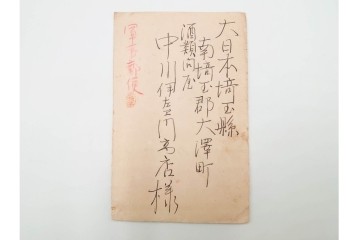 大日本埼玉縣
南埼玉郡大澤町
酒類问屋
中川伊左エ門商店様
軍事郵便